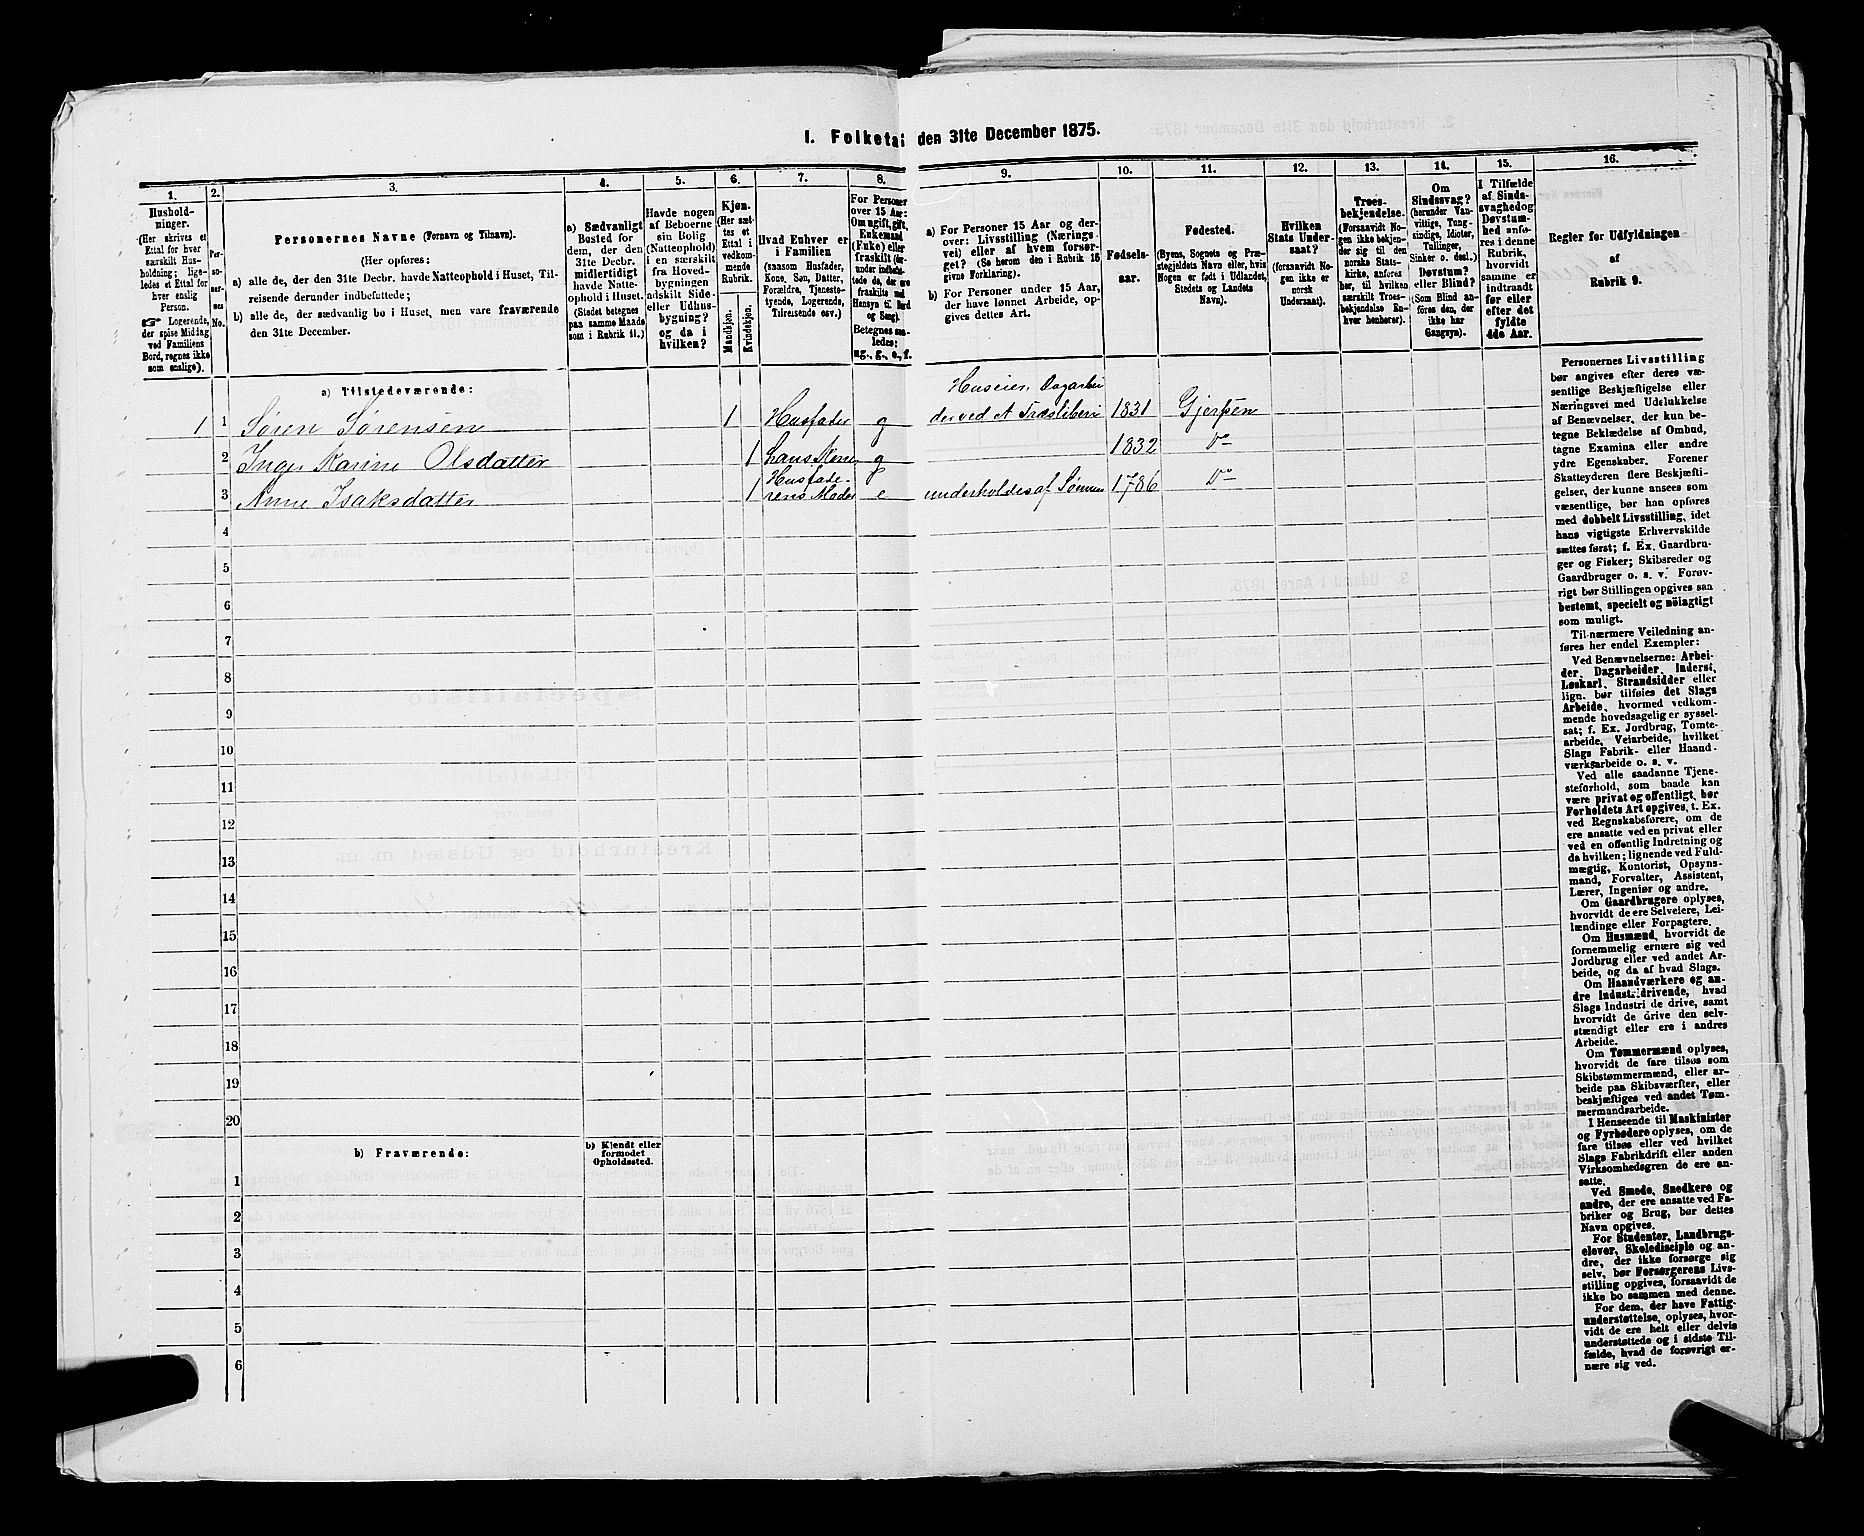 1. Folketal den 31te December 1875.
1. 2. 3. 4. 5. 6. 7. 8. 9. 10. 11. 12. 13. 14. 15. 16.
Hushold-
ninger.
(Her skrives et
Ettal for hver
særskilt Hus-
holdning; lige-
ledes et Ettal for
hver enslig
Person.
☞ Logerende,
der spise Middag
ved Familiens
Bord, regnes ikke
som enslige).
Per-
so-
ner-
nes
No.
Personernes Navne (Fornavn og Tilnavn).
(Her opføres:
a) alle de, der den 31te Decbr. havde Natteophold i Huset, Til-
reisende derunder indbefattede;
b) alle de, der sædvanlig bo i Huset, men vare fraværende
den 31te December.
a) Sædvanligt
Bosted for
dem, der den
31te Decbr.
midlertidigt
havde Natte-
ophold i Huset.
(Stedet betegnes
paa samme Maade
som i Rubrik 11.)
Havde nogen
af Beboerne
sin Bolig
(Natteophold)
i en særskilt
fra Hoved-
bygningen
adskilt Side-
eller Udhus-
bygning?
og da i
hvilken?
Kjøn.
(Her sæt-
tes et
Ettal i
vedkom-
mende
Rubrik.
Mandkjøn.
Kvindekjøn.
Hvad Enhver er
i Familien
(saasom Husfader,
Kone, Søn, Datter,
Forældre, Tjeneste-
tyende, Logerende,
Tilreisende osv.)
For Personer
over 15 Aar:
Om ugift, gift,
Enkemand
(Enke) eller
fraskilt
Betegnes saa-
ledes:
ug., g., e., f.
a) For Personer 15 Aar og der-
over: Livsstilling (Nærings-
vei) eller af hvem forsør-
get? (Se herom den i Rubrik 16
givne Forklaring).
b) For Personer under 15 Aar,
der have lønnet Arbeide, op-
gives dettes Art.
Fødsels-
aar.
Fødested.
(Byens, Sognets og Præ-
stegjeldets Navn eller, hvis
Nogen er født i Udlandet,
Stedets og Landets
Navn).
Hvilken
Stats Under-
saat?
(forsaavidt No-
gen ikke er
norsk
Undersaat).
Troes-
bekjendelse.
(Forsaavidt No-
gen ikke bekjen-
der sig til den
norske Stats-
kirke, anføres
her, til hvilken
særskilt Troes-
bekjendelse En-
hver henhører).
Om
Sindssvag?
(herunder Van-
vittige, Tung-
sindige, Idioter,
Tullinger,
Sinker o. desl.)
Døvstum?
eller Blind?
(Som Blind an-
føres den, der
ikke har
Gangsyn).
I Tilfælde
af Sinds-
svaghed og
Døvstum-
hed anfø-
res i denne
Rubrik,
hvorvidt
samme er
indtraadt
før eller
efter det
fyldte
4de Aar.
Regler for Udfyldningen
af
Rubrik 9.
a) Tilstedeværende:
Huseier, Dagarbei
1 1 Søren Sørensen 1 Husfader g der ved A Træsliberi 1831 Gjerpen
2 Inger Karine Olsdatter 1 hans Kone g 1832 Do
3 Anne Isaksdatter 1 Husfade-
rens Moder e underholdes af Sønnen 1786 Do
4
5
6
7
8
9
10
11
12
13
14
15
16
17
18
19
20
b) Fraværende:
b) Kjendt eller
formodet
Opholdssted.
1
2
3
4
5
6
Personernes Livsstilling
bør angives efter deres væ-
sentlige Beskjæftigelse eller
Næringsvei med Udelukkelse
af Benævnelser, der kun be-
tegne Bekledelse af Ombud,
tagne Examina eller andre
ydre Egenskaber. Forener
Skatteyderen flere Beskjæfti-
gelser, der kunne ansees som
væsentlige, bør han opføres
med dobbelt Livsstilling, idet
hans vigtigste Erhvervskilde
sættes først; f. Ex. Gaardbru-
ger og Fisker; Skibsreder og
Gaardbruger o. s. v. Forøv-
rigt bør Stillingen opgives saa
bestemt, specielt og nöiagtigt
som muligt.
Til nærmere Veiledning an-
føres her endel Exempler:
Ved Benævnelserne: Arbei-
der, Dagarbeider, Inderst,
Løskarl, Strandsidder eller
lign. bør tilføies det Slags
Arbeide, hvormed vedkom-
mende hovedsagelig er syssel-
sat; f. Ex. Jordbrug, Tomte-
arbeide, Veiarbeide, hvilket
Slags Fabrik- eller Haand-
værksarbeide o. s. v.
Ved alle saadanne Tjene-
steforhold, som baade kan
være privat og offentligt, bør
Forholdets Art opgives, t. Ex.
ved Regnskabsførere, om de
ere ansatte ved en privat eller
ved en offentlig Indretning og
da hvilken; lignende ved Fuld-
mægtig, Kontorist, Opsyns-
mand, Forvalter, Assistent,
Lærer, Ingeniør og andre.
Om Gaardbrugere oplyses,
hvorvidt de ere Selveiere, Lei-
lændinge eller Forpagtere.
Om Husmænd, hvorvidt de
fornemmelig ernære sig ved
Jordbrug eller ved andet Ar-
beide, og da af hvad Slags.
Om Haandværkere og an-
dre Industridrivende, hvad
Slags Industri de drive, samt
hvorvidt de drive den selv-
stændigt eller ere i andres
Arbeide.
Om Tømmermænd oplyses,
hvorvidt de fare tilsøs som
Skibstømmermænd, eller ar-
beide paa Skibsværfter, eller
beskjæftiges ved andet Tøm-
mermandsarbeide.
I Henseende til Maskinister
og Fyrbødere oplyses, om de
fare tilsøs eller ved hvilket
Slags Fabrikdrift eller anden
Virksomhedsgren de ere an-
satte.
Ved Smede, Snedkere og
andre, der ere ansatte ved Fa-
briker og Brug, bør dettes
Navn opgives.
For Studenter, Landbrugs-
elever, Skoledisciple og an-
dre, der ikke forsørge sig
selv, bør Forsørgerens Livs-
stilling opgives, forsaavidt de
ikke bo sammen med denne.
For dem, der have Fattig-
understøttelse, oplyses, hvor-
vidt de ere helt eller delvis
understøttede og i sidste Til-
fælde, hvad de forøvrigt er-
nære sig ved.